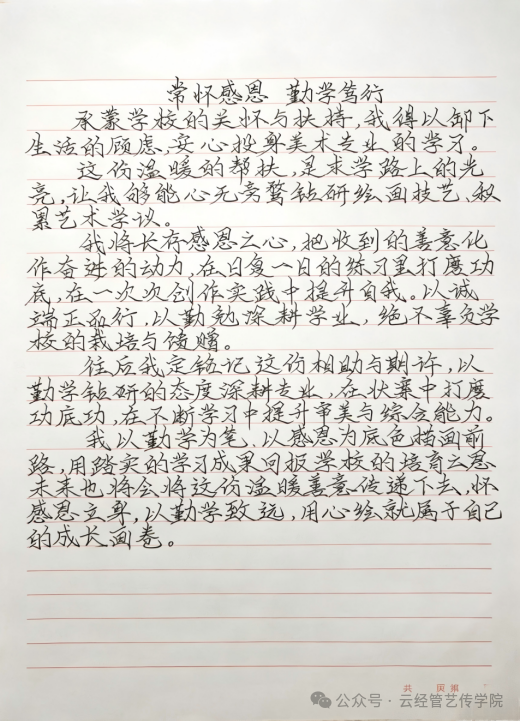 常怀感恩 勤学笃行
承蒙学校的关怀与扶持,我得以卸下
生活的顾虑、安心投身美术专业的学习。
这份温暖的帮扶,是求学路上的光
亮,让我够能心无旁骛钻研绘画技艺、积
累艺术学识。
我将长存感恩之心,把收到的善意化
作奋进的动力,在日复一日的练习里打磨功
底,在一次次创作实践中提升自我。以诚
端正品行,以勤勉深耕学业,绝不辜负学
校的栽培与馈赠。
往后我定铭记这份相助与期许,以
勤学钻研的态度深耕专业,在中打磨
功底功,在不断学习中提升审美与综合能力。
我以勤学为笔,以感恩为底色描画前
路,用踏实的学习成果回报学校的培育之恩
未来也将会将这份温暖善意传递下去,怀
感恩立身,以勤学致远,用心绘就属于自己
的成长画卷。
共 页 第
公众号·云经管艺传学院